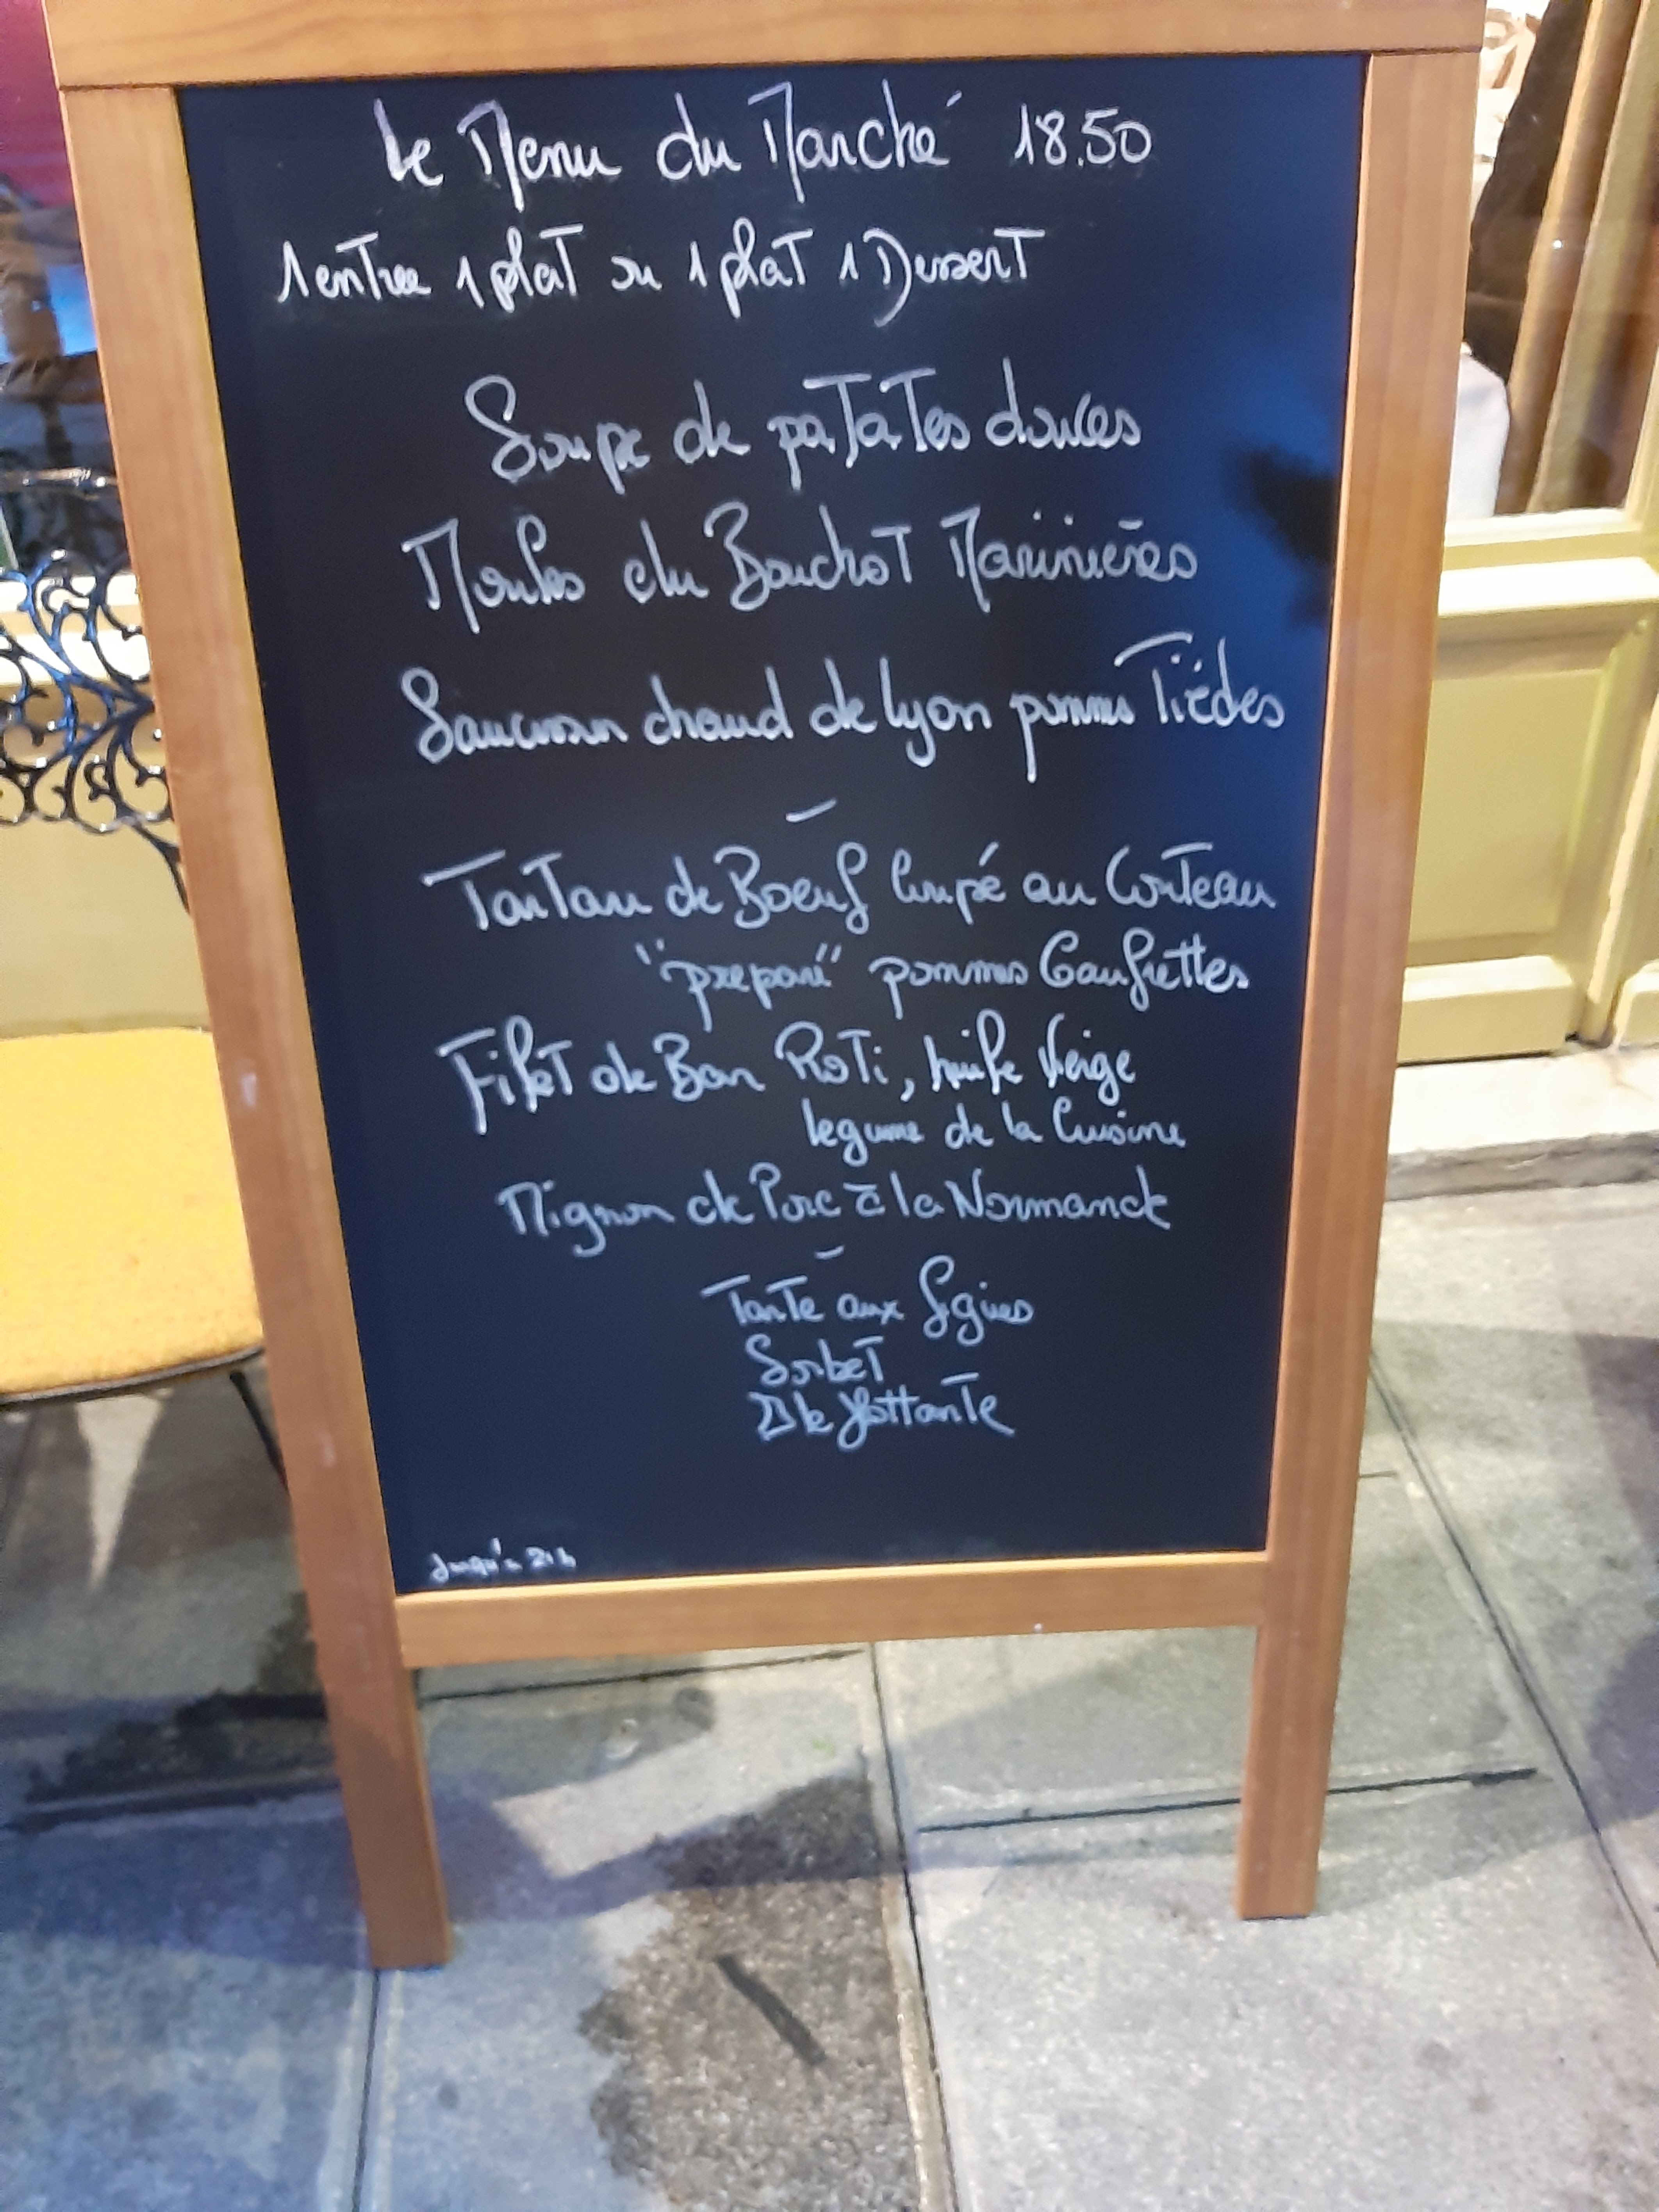 Le Menu du Marché 18.50
1 entree 1 plat ou 1 plat 1 Dessert
Soupe de patates douces
Moules du Bouchot Marinières
Saucisson chaud de Lyon pommes Tièdes
-
Tartare de Boeuf Coupé au Couteau
"preparé" pommes Gaufrettes
Filet de Bar Roti, huile Vierge
legume de la Cuisine
Mignon de Porc à la Normande
-
Tarte aux figues
Sorbet
Ile flottante
Jusqu'à 21h